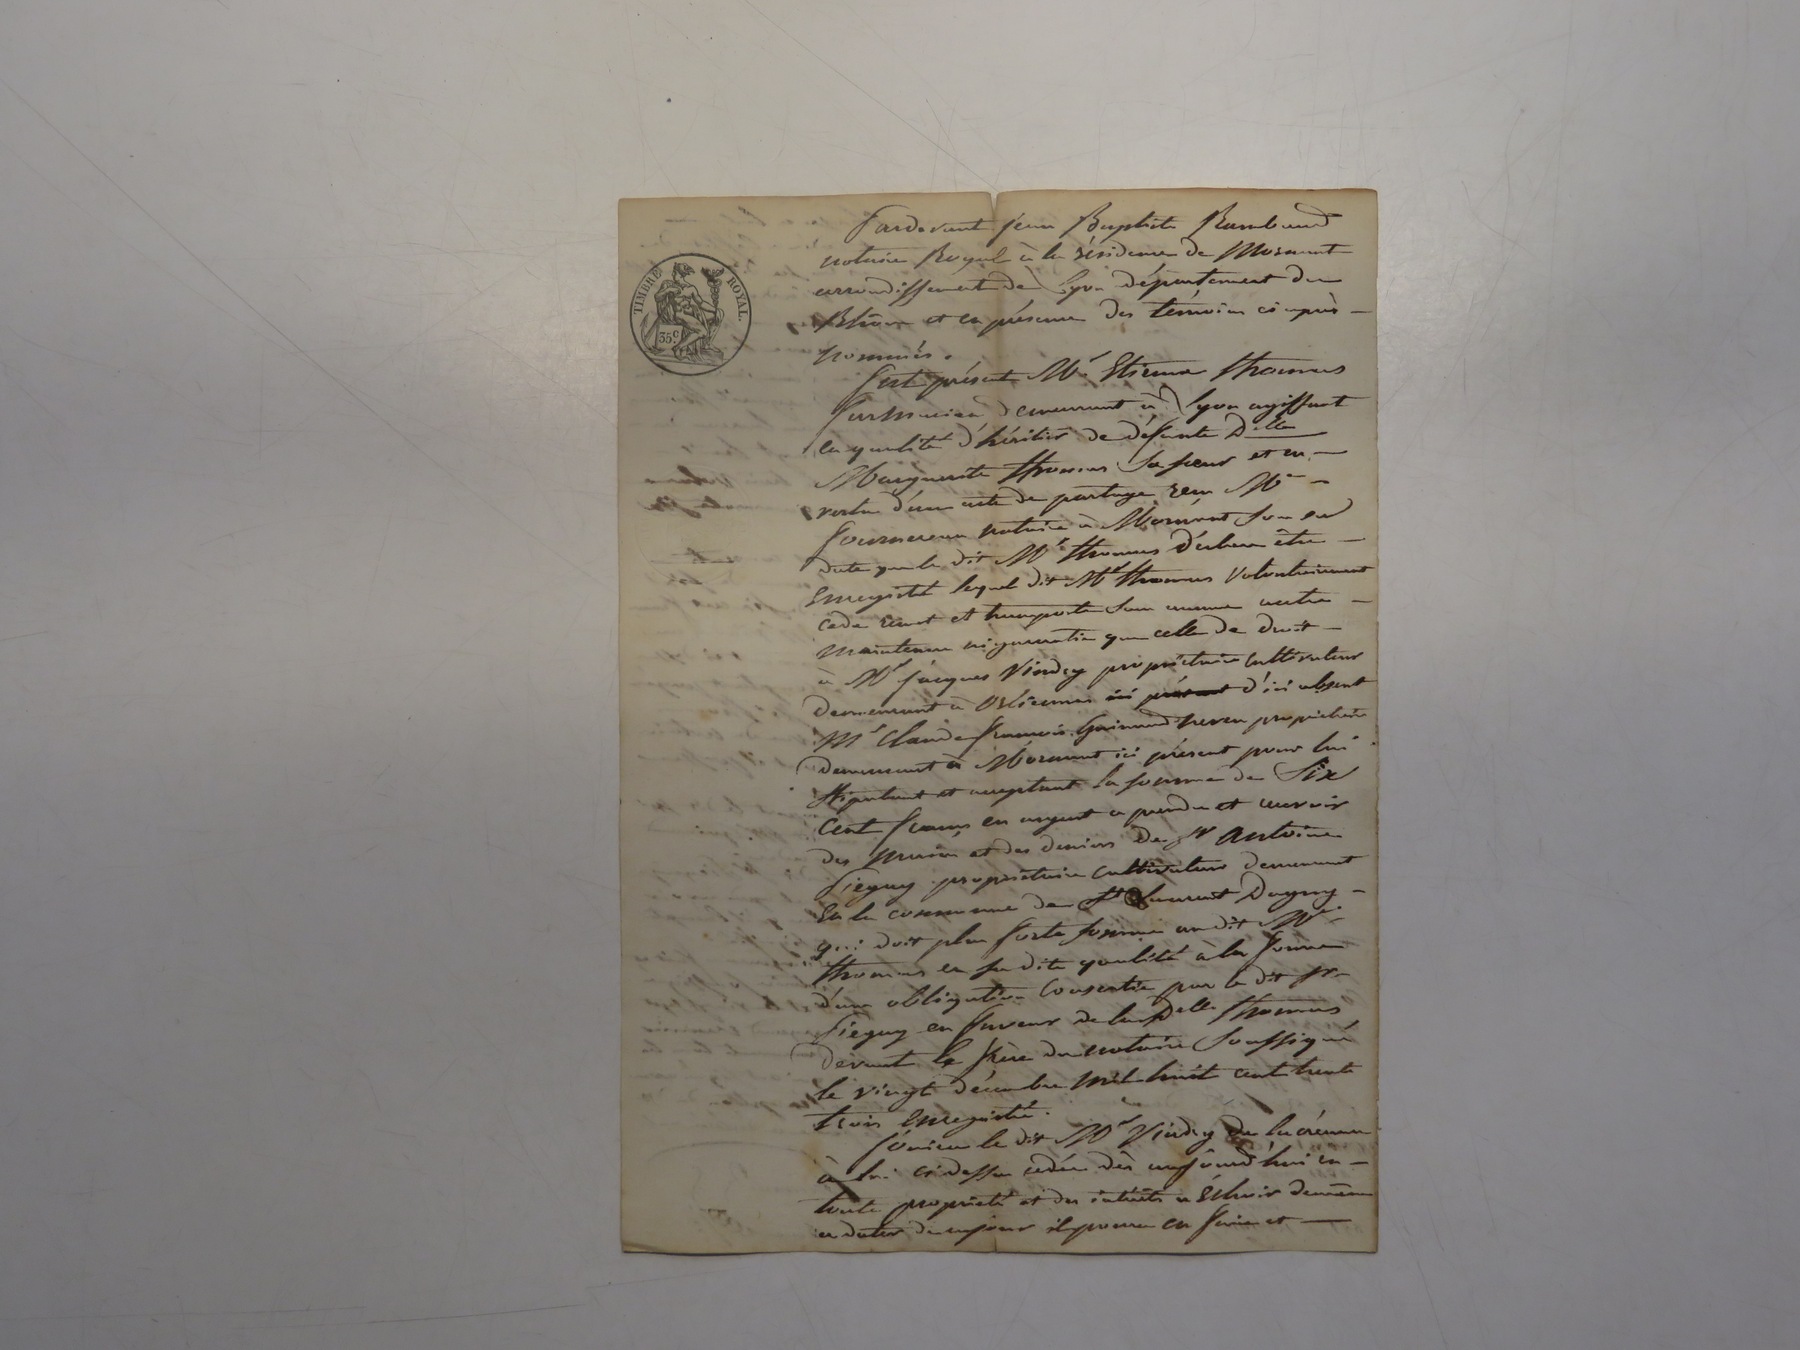 TIMBRE ROYAL.
35 c.
Pardevant jean Baptiste Rambaud
notaire Royal à la résidence de Mornant
arrondissement de Lyon département du
Rhône et en présence des témoins ci après
nommés.
fut présent Mr. Etienne thomas
demeurant à Lyon agissant
en qualité d'héritier de défunte Delle
Marguerite thomas sa sœur et en
vertu d'un acte de partage reçu Me
notaire à Mornant sous sa
date que le dit Mr thomas déclare être
Enregistré lequel dit Mr thomas volontairement
cede remet et transporte sans aucune autre
maintenue ni garantie que celle de droit
à Mr jacques Vindry propriétaire Cultivateur
demeurant à Orliénas ici présent d'ici absent
Mr Claude françois neveu propriétaire
demeurant à Mornant ici présent pour lui
stipulant et acceptant la somme de Six
Cent francs en argent a prendre et recevoir
des mains et des deniers de sr antoine
propriétaire cultivateur demeurant
En la commune de St Laurent Dagny
qui doit plus forte somme au dit Mr
thomas en sa dite qualité à la forme
d'une obligation Consentie par le dit sr
en faveur de la Delle thomas
devant le frère du notaire Soussigné
le vingt décembre mil huit cent trente
trois Enregistré.
jouira le dit Mr Vindry de la créance
à lui ci dessus cedée dès aujourd'hui en
toute propriété et des intérêts a Echoir
a dater de ce jour il pourra en faire et